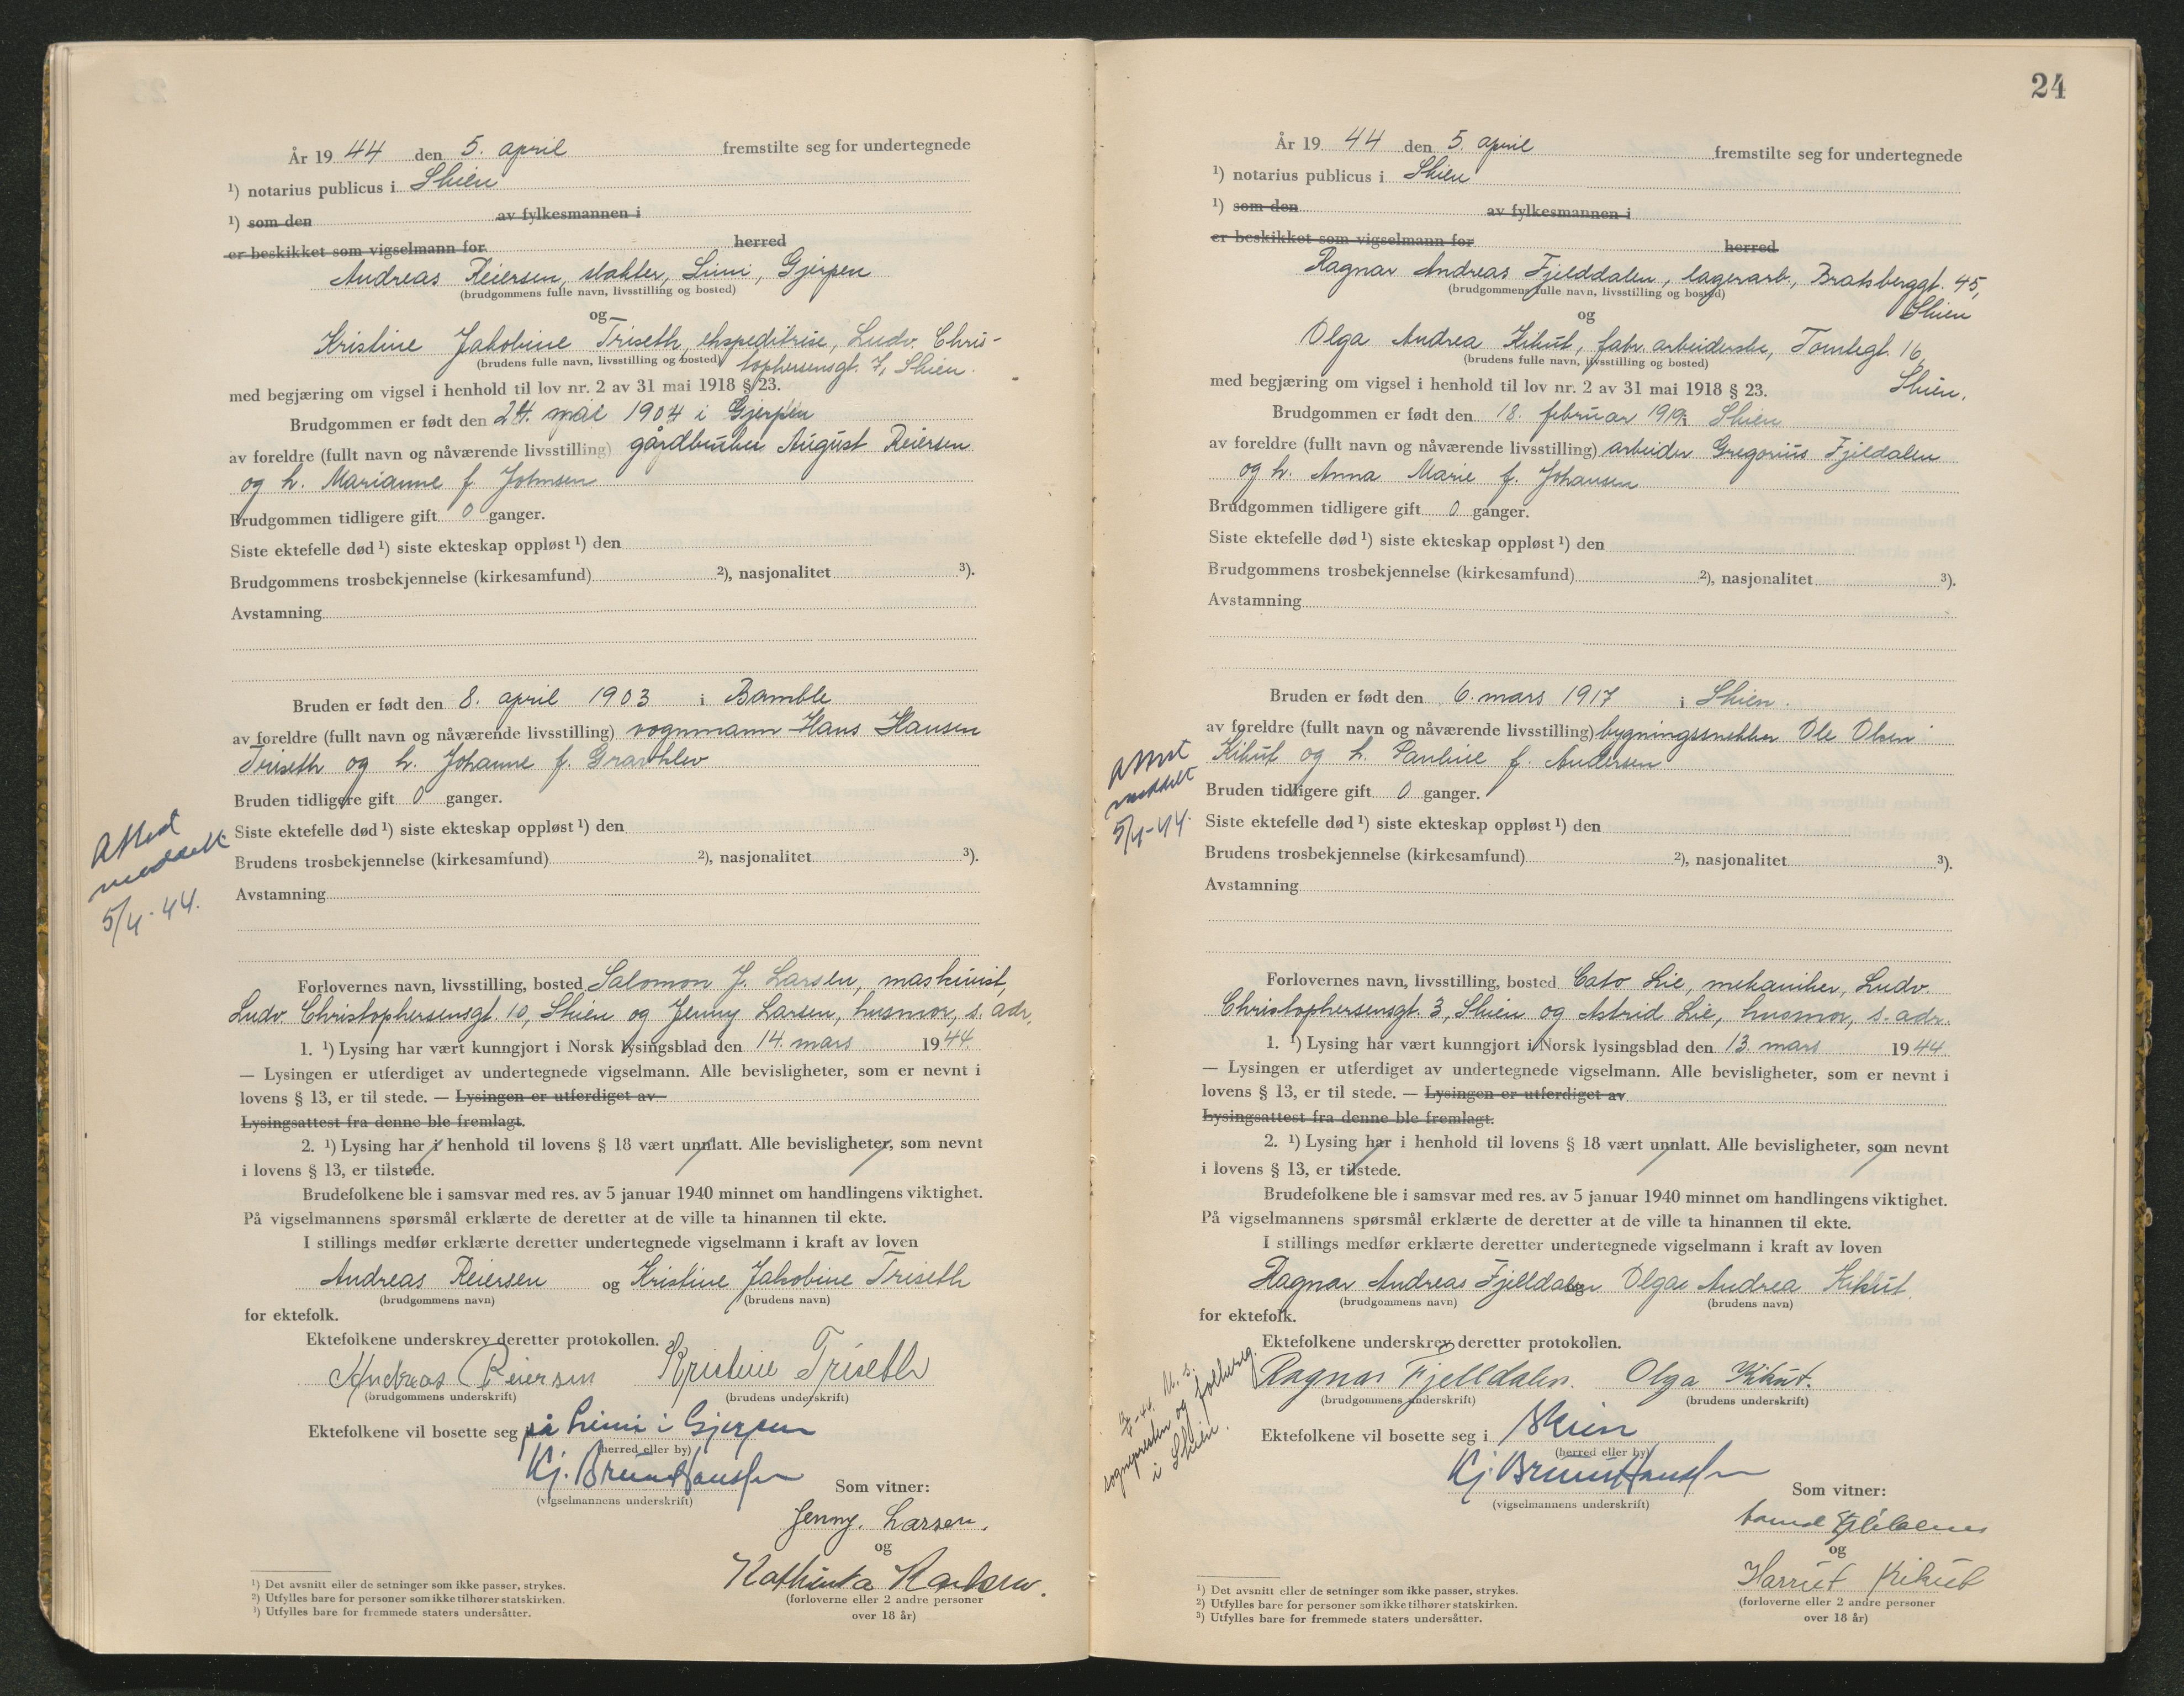 År 19 44 den 5. april fremstilte seg for undertegnede
¹) notarius publicus i Skien
¹) som den av fylkesmannen i
er beskikket som vigselmann for herred
Andreas Reiersen, slakter, Limi, Gjerpen
(brudgommens fulle navn, livsstilling og bosted)
og
Kristine Jakobine Triseth, ekspeditrise, Ludv. Chris-
(brudens fulle navn, livsstilling og bosted) tophersensgt. 7, Skien.
med begjæring om vigsel i henhold til lov nr. 2 av 31 mai 1918 § 23.
Brudgommen er født den 24. mai 1904 i Gjerpen
av foreldre (fullt navn og nåværende livsstilling) gårdbruker August Reiersen
og h. Marianne f. Johnsen
Brudgommen tidligere gift 0 ganger.
Siste ektefelle død ¹) siste ekteskap oppløst ¹) den
Brudgommens trosbekjennelse (kirkesamfund) ²), nasjonalitet ³).
Avstamning
Bruden er født den 8. april 1903 i Bamble
av foreldre (fullt navn og nåværende livsstilling) vognmann Hans Hansen
Triseth og h. Johanne f.
Bruden tidligere gift 0 ganger.
Siste ektefelle død ¹) siste ekteskap oppløst ¹) den
Brudens trosbekjennelse (kirkesamfund) ²), nasjonalitet ³).
Avstamning
Attest
meddelt
5/4-44.
Forlovernes navn, livsstilling, bosted Salomon J. Larsen, maskinist,
Ludv. Christophersensgt. 10, Skien og Jenny Larsen, husmor, s. adr.
1. ¹) Lysing har vært kunngjort i Norsk lysingsblad den 14. mars 1944.
— Lysingen er utferdiget av undertegnede vigselmann. Alle bevisligheter, som er nevnt i
lovens § 13, er til stede. — Lysingen er utferdiget av
Lysingsattest fra denne ble fremlagt.
2. ¹) Lysing har i henhold til lovens § 18 vært unnlatt. Alle bevisligheter, som nevnt
i lovens § 13, er tilstede.
Brudefolkene ble i samsvar med res. av 5 januar 1940 minnet om handlingens viktighet.
På vigselmannens spørsmål erklærte de deretter at de ville ta hinannen til ekte.
I stillings medfør erklærte deretter undertegnede vigselmann i kraft av loven
Andreas Reiersen og Kristine Jakobine Triseth
(brudgommens navn) (brudens navn)
for ektefolk.
Ektefolkene underskrev deretter protokollen.
Andreas Reiersen Kristine Triseth
(brudgommens underskrift) (brudens underskrift)
Ektefolkene vil bosette seg på Limi i Gjerpen
(herred eller by)
Kj. Bruun Hanssen
(vigselmannens underskrift)
Som vitner:
Jenny. Larsen.
og
Kathinka Karlsen.
(forloverne eller 2 andre personer
over 18 år)
¹) Det avsnitt eller de setninger som ikke passer, strykes.
²) Utfylles bare for personer som ikke tilhører statskirken.
³) Utfylles bare for fremmede staters undersåtter.
24
År 19 44 den 5. april fremstilte seg for undertegnede
¹) notarius publicus i Skien
¹) som den av fylkesmannen i
er beskikket som vigselmann for herred
Ragnar Andreas Fjelddalen, lagerarb., Bratsberggt. 45,
(brudgommens fulle navn, livsstilling og bosted) Skien
og
Olga Andrea Kikut, fabr. arbeiderske, Tomtegt. 16,
(brudens fulle navn, livsstilling og bosted)
med begjæring om vigsel i henhold til lov nr. 2 av 31 mai 1918 § 23. Skien.
Brudgommen er født den 18. februar 1919 i Skien
av foreldre (fullt navn og nåværende livsstilling) arbeider Gregorius Fjeldalen
og h. Anna Marie f. Johansen
Brudgommen tidligere gift 0 ganger.
Siste ektefelle død ¹) siste ekteskap oppløst ¹) den
Brudgommens trosbekjennelse (kirkesamfund) ²), nasjonalitet ³).
Avstamning
Bruden er født den 6. mars 1917 i Skien.
av foreldre (fullt navn og nåværende livsstilling) bygningssnekker Ole Olsen
Kikut og h. Pauline f. Andersen
Bruden tidligere gift 0 ganger.
Siste ektefelle død ¹) siste ekteskap oppløst ¹) den
Brudens trosbekjennelse (kirkesamfund) ²), nasjonalitet ³).
Avstamning
Attest
meddelt
5/4-44.
Forlovernes navn, livsstilling, bosted Cato Lie, mekaniker, Ludv.
Christophersensgt. 3, Skien og Astrid Lie, husmor, s. adr.
1. ¹) Lysing har vært kunngjort i Norsk lysingsblad den 13. mars 1944
— Lysingen er utferdiget av undertegnede vigselmann. Alle bevisligheter, som er nevnt i
lovens § 13, er til stede. — Lysingen er utferdiget av
Lysingsattest fra denne ble fremlagt.
2. ¹) Lysing har i henhold til lovens § 18 vært unnlatt. Alle bevisligheter, som nevnt
i lovens § 13, er tilstede.
Brudefolkene ble i samsvar med res. av 5 januar 1940 minnet om handlingens viktighet.
På vigselmannens spørsmål erklærte de deretter at de ville ta hinannen til ekte.
I stillings medfør erklærte deretter undertegnede vigselmann i kraft av loven
Ragnar Andreas Fjelldalen og Olga Andrea Kikut.
(brudgommens navn) (brudens navn)
for ektefolk.
Ektefolkene underskrev deretter protokollen.
Ragnar Fjelldalen. Olga Kikut.
(brudgommens underskrift) (brudens underskrift)
Ektefolkene vil bosette seg i Skien
(herred eller by)
Kj. Bruun Hanssen
(vigselmannens underskrift)
M. s.
sognepresten og folkereg.
i Skien.
Som vitner:
og
Harriet Kikut
(forloverne eller 2 andre personer
over 18 år)
¹) Det avsnitt eller de setninger som ikke passer, strykes.
²) Utfylles bare for personer som ikke tilhører statskirken.
³) Utfylles bare for fremmede staters undersåtter.